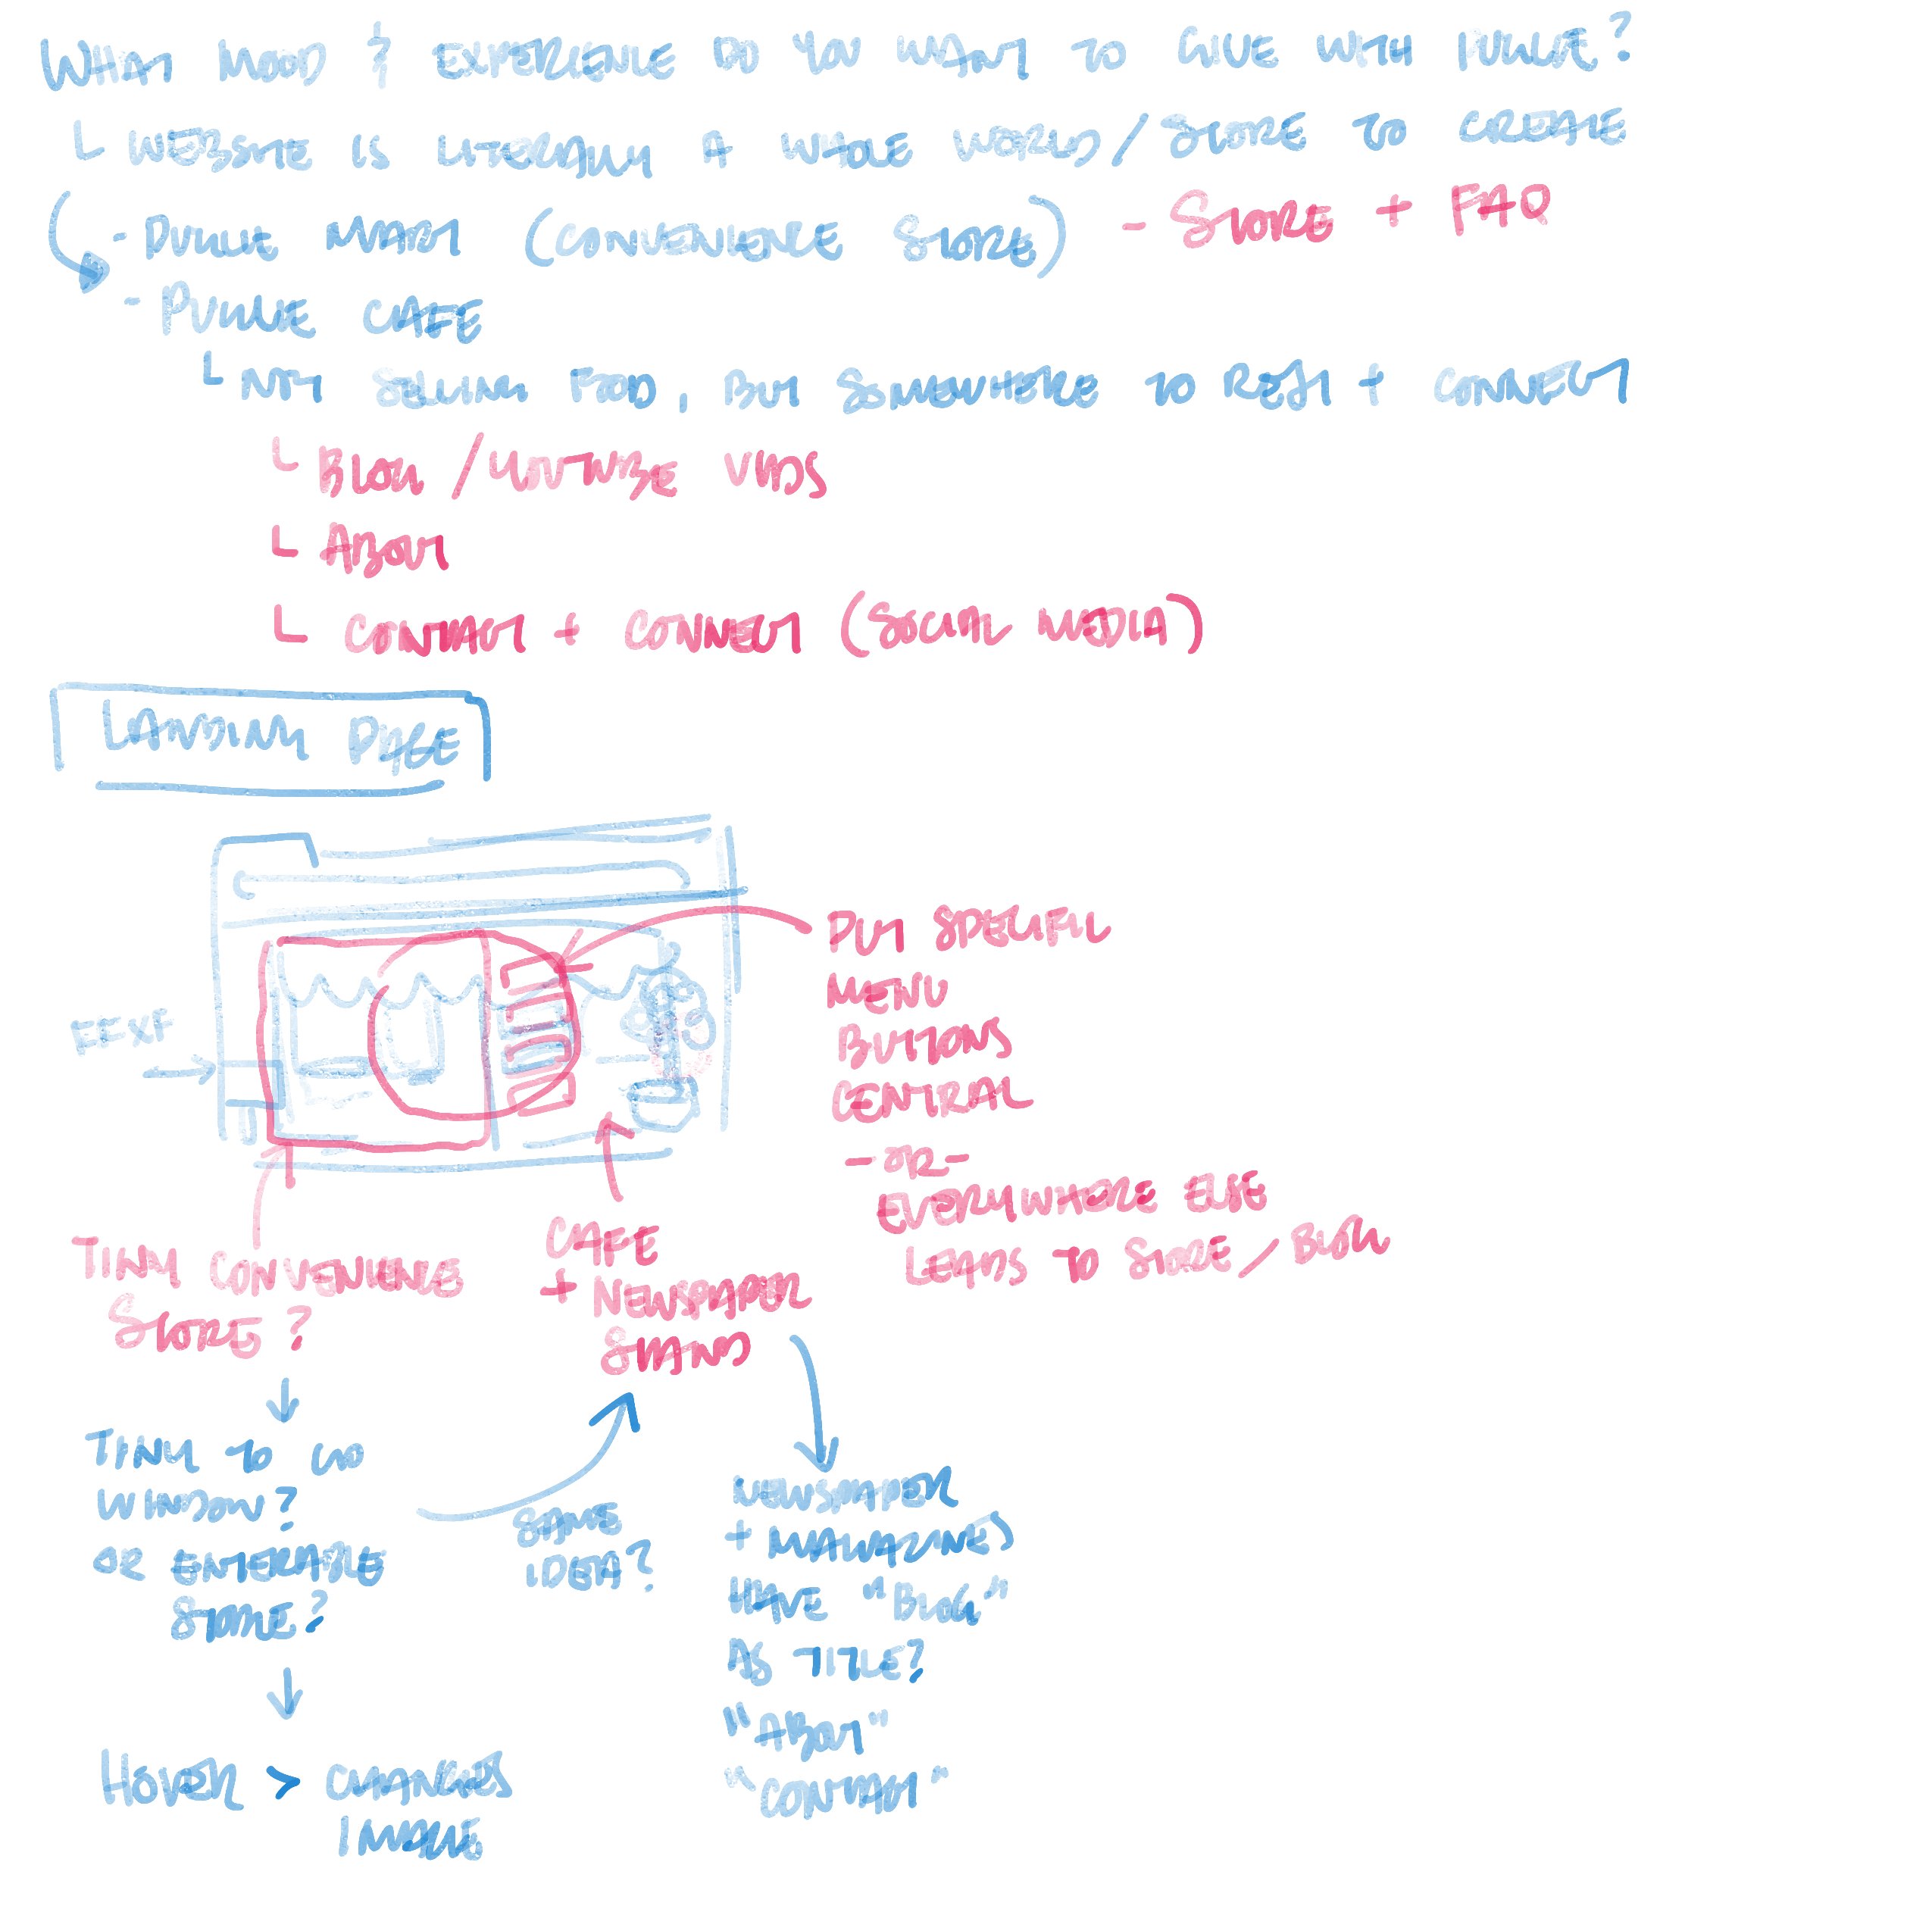 WHAT MOOD & EXPERIENCE DO YOU WANT TO GIVE WITH
WEBSITE IS LITERALLY A WHOLE WORLD/STORE TO CREATE
- MART (CONVENIENCE STORE) - STORE + FAQ
- CAFE
NOT SELLING FOOD, BUT SOMEWHERE TO REST + CONNECT
BLOG/YOUTUBE VIDS
ABOUT
CONTACT + CONNECT (SOCIAL MEDIA)
LANDING PAGE
PUT SPECIFIC
MENU
BUTTONS
CENTRAL
-OR-
EVERYWHERE ELSE
LEADS TO STORE/BLOG
TINY CONVENIENCE
STORE?
CAFE
+ NEWSPAPER
STAND
TINY TO GO
WINDOW?
OR ENTERABLE
STORE?
SAME
IDEA?
NEWSPAPER
+ MAGAZINES
HAVE "BLOG"
AS TITLE?
"ABOUT"
"CONTACT"
HOVER > CHANGES
IMAGE